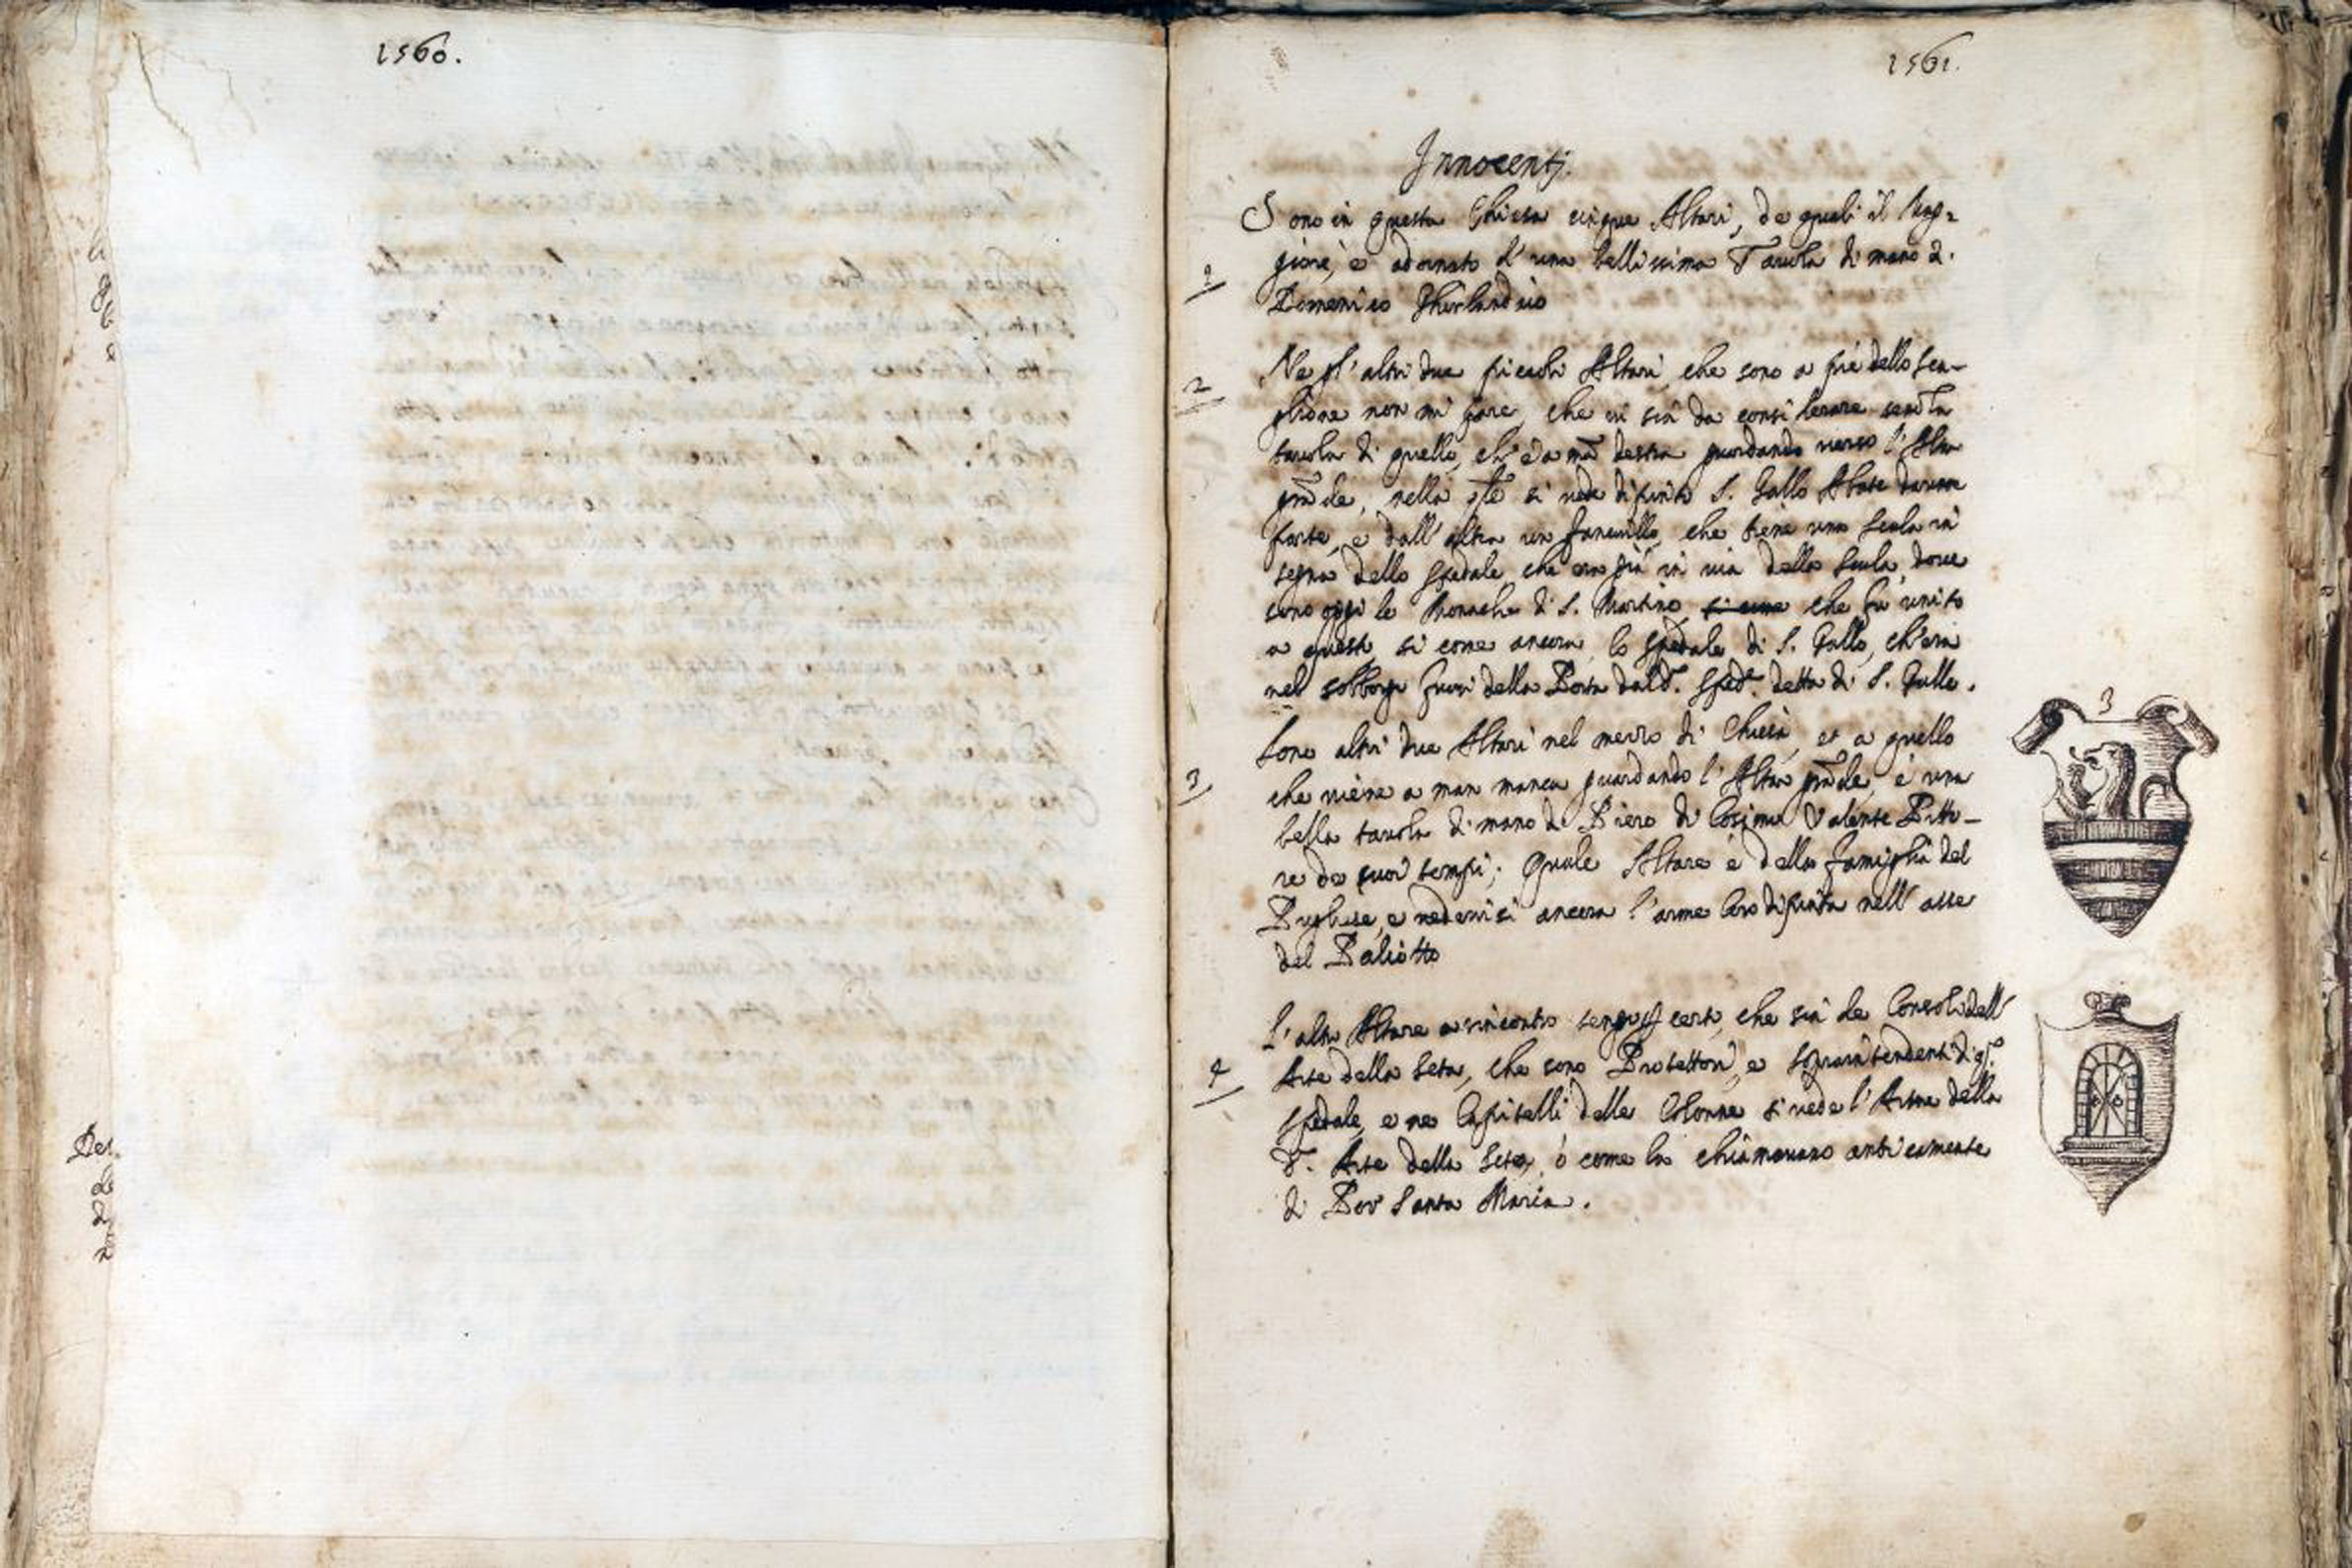 1560.
1561.
Innocentj.
Sono in questa Chiesa cinque Altari, de quali il Mag=
giore, è adornato d'una bellissima Tavola di mano d.
1
Domenico Ghirlandaio
Ne gl'altri due piccoli Altari, che sono a piè dello sca-
2
glione non mi pare, che vi sia da considerare
tavola di quello, ch'è a mã destra guardando verso l'Altar
grãde, nella qle si vede dipinto S. Gallo Abate da una
parte, e dall'altra un fanciullo, che tiene una scala in
segna dello spedale, che era già in via della Scala, dove
sono oggi le Monache di S. Martino, si come che fu unito
a questo, si come ancora lo spedale di S. Gallo, ch'era
nel sobborgo fuori della Porta dal d.º sped.e detta di S. Gallo.
Sono altri due Altari nel mezzo di Chiesa, et a quello
3
che viene a man manca guardando l'Altar grãde, è una
bella tavola di mano di Piero di Cosimo Valente Pitto-
re de suoi tempi; Quale Altare è della famiglia del
Pugliese, e vedervisi ancora l'arme loro dipinta nell'asse
del Paliotto
3
L'altro Altare a rincontro certo, che sia de Consoli dell'
4
Arte della Seta, che sono Protettori, e Soprantendenti di qº.
spedale, e ne Capitelli delle Colonne si vede l'Arme della
d.ª Arte della Seta, ò come la chiamavano anticamente
di Por Santa Maria.
Del